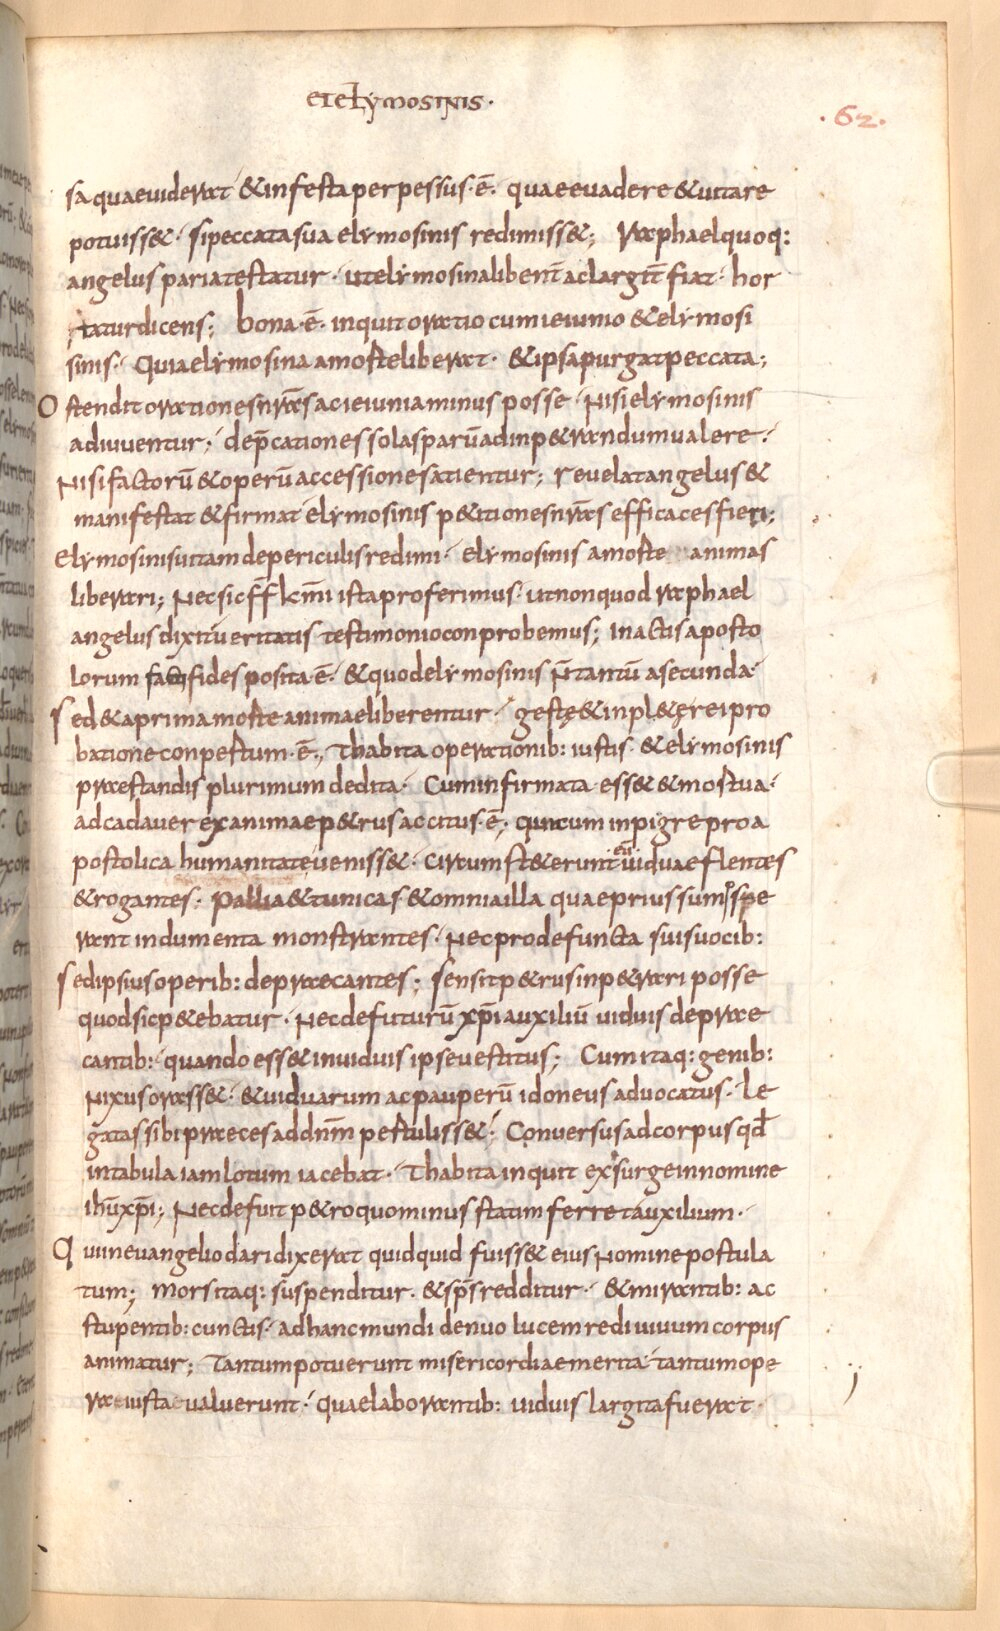 et elymosinis·
·62·
sa quae uiderat· & infesta perpessus· ē· quae euadere & uitare
potuiss&· si peccata sua elymosinis redimiss&; Raphael quoq:
angelus paria testatur· ut elymosina libent̄ ac largit̄ fiat· hor
tatur dicens; bona· ē· inquit oratio cum ieiunio & elymosi
sinis· Quia elymosina a morte liberat· & ipsa purgat peccata;
Ostendit orationes nr̄as ac ieiunia minus posse· Nisi elymosinis
adiuuentur; dep̄cationes solas parū ad inp&randum ualere·
Nisi factorū & operū accessione satientur; reuelat angelus &
manifestat & firmat elymosinis p&itiones nr̄as efficaces fieri;
Elymosinis uitam de periculis redimi· elymosinis a morte animas
liberari; Nec sic ff̄ km̄i ista proferimus· ut non quod raphael
angelus dixit ueritatis testimonio conprobemus; In actis aposto
lorum facti fides posita· ē· & quod elymosinis n̄ tantū a secunda·
Sed & a prima morte animae liberentur· gestę & inpl&ę rei pro
batione conpertum· ē·; Thabita operationib: iustis· & elymosinis
praestandis plurimum dedita· Cum infirmata ess& & mortua·
ad cadauer exanimae p&rus accitus· ē· qui cum inpigre pro a
postolica humanitate ueniss&· circumst&erunt eū uiduae flentes
& rogantes· Pallia & tunicas & omnia illa quae prius sumpse
rant indumenta monstrantes· Nec pro defuncta suis uocib:
Sed ipsius operib: depraecantes; sensit p&rus inp&rari posse
quod sic p&ebatur· Nec defuturū xp̄i auxiliū uiduis deprae
cantib:· quando ess& in uiduis ipse uestitus; Cum itaq: genib:
Nixus orass&· & uiduarum ac pauperū idoneus aduocatus· le
gatas sibi praeces ad dn̄m pertuliss&· Conuersus ad corpus qd̄
in tabula iam lotum iacebat· Thabita inquit exsurge in nomine
ih̄u xp̄i; Nec defuit p&ro quominus statim ferret auxilium·
Qui in euangelio dari dixerat quidquid fuiss& eius Nomine postula
tum; mors itaq: suspenditur· & sp̄s redditur· & mirantib: ac
stupentib: cunctis· ad hanc mundi denuo lucem rediuiuum corpus
animatur; Tantum potuerunt misericordiae merita· tantum ope
ra iusta ualuerunt· quae laborantib: uiduis largita fuerat·